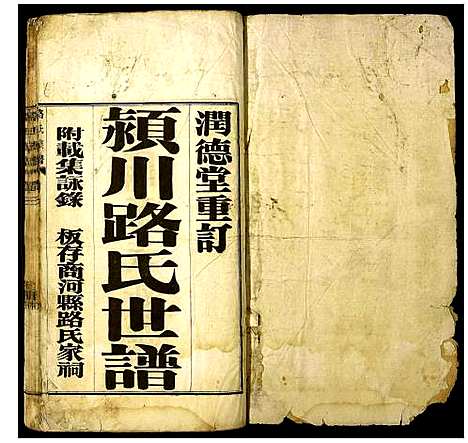 潤德堂重訂
潁川路氏世譜
附載集詠錄 板存商河縣路氏家祠